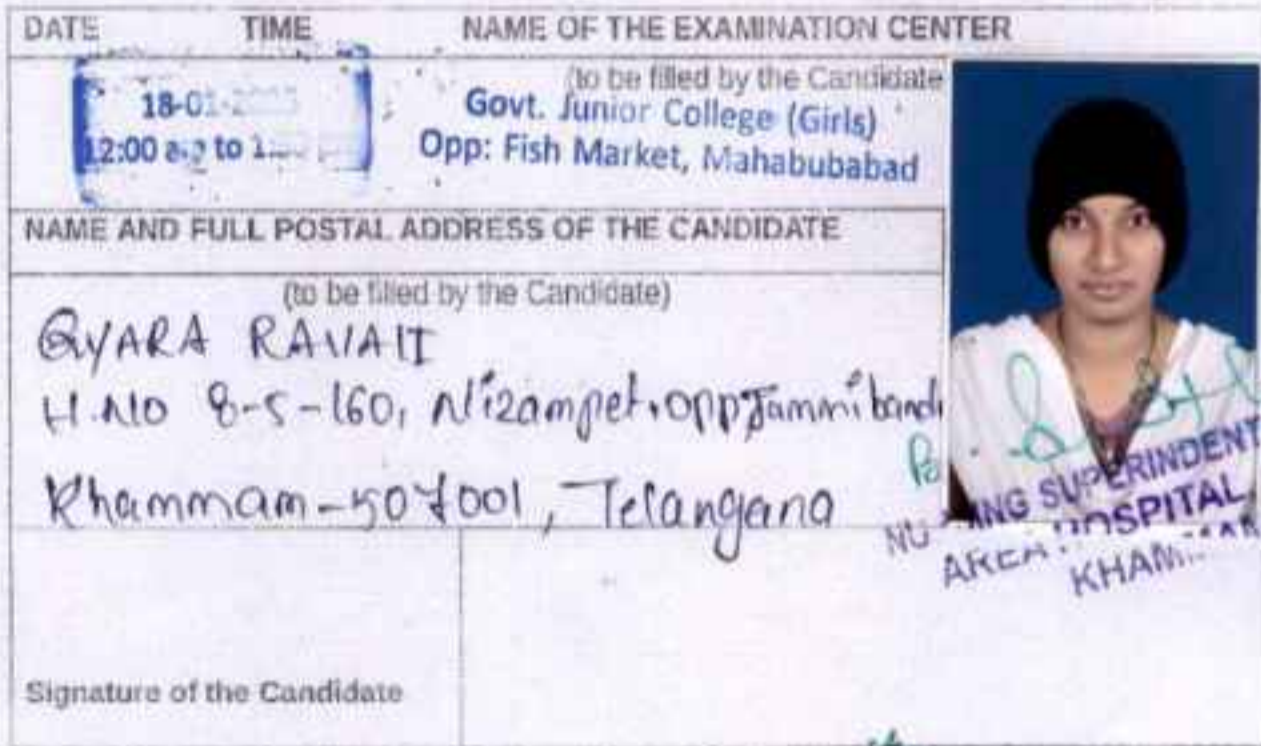 DATE TIME NAME OF THE EXAMINATION CENTER
(to be filled by the Candidate
18-01-
12:00 to
Govt. Junior College (Girls)
Opp: Fish Market, Mahabubabad
NAME AND FULL POSTAL ADDRESS OF THE CANDIDATE
(to be filled by the Candidate)
GYARA
H.NO 8-5-160, Nizampet, opp Jammibanda
Khammam-507001, Telangana
SUPERINDENT
HOSPITAL
Signature of the Candidate